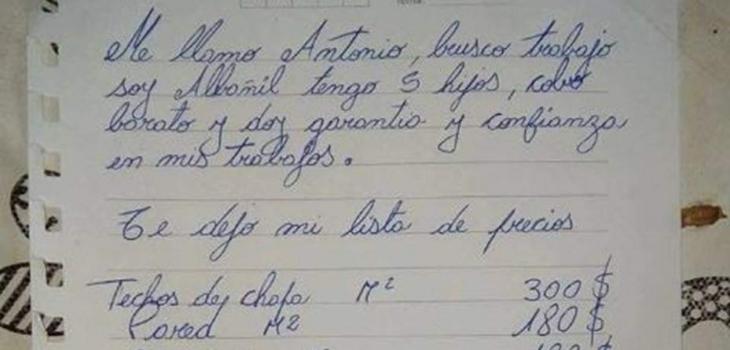 Me llamo Antonio, busco trabajo
soy Albañil tengo 5 hijos, cobro
barato y doy garantia y confianza
en mis trabajos.
Te dejo mi lista de precios
Techos de chapa M² 300 $
Pared M2 180 $